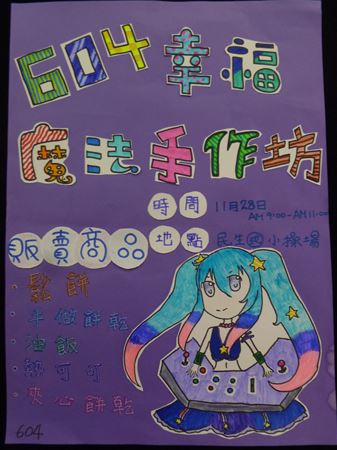 604幸福
魔法手作坊
時間 11月28日
AM 9:00-AM 11:00
地點 民生國小操場
販賣商品
・鬆餅
・手做餅乾
・油飯
・熱可可
・夾心餅乾
604